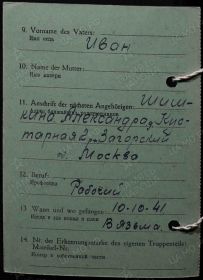 9. Vorname des Vaters:
Имя отца
Иван
10. Name der Mutter:
Имя матери
11. Anschrift der nächsten Angehörigen: Шиш-
кина Александра, Кус-
тарная 2, Загорский
Москва
12. Beruf:
Профессия
Рабочий
13. Wann und wo gefangen:
10-10-41
Когда и где попал в плен
Вязьма
14. Nr. der Erkennungsmarke des eigenen Truppenteils: